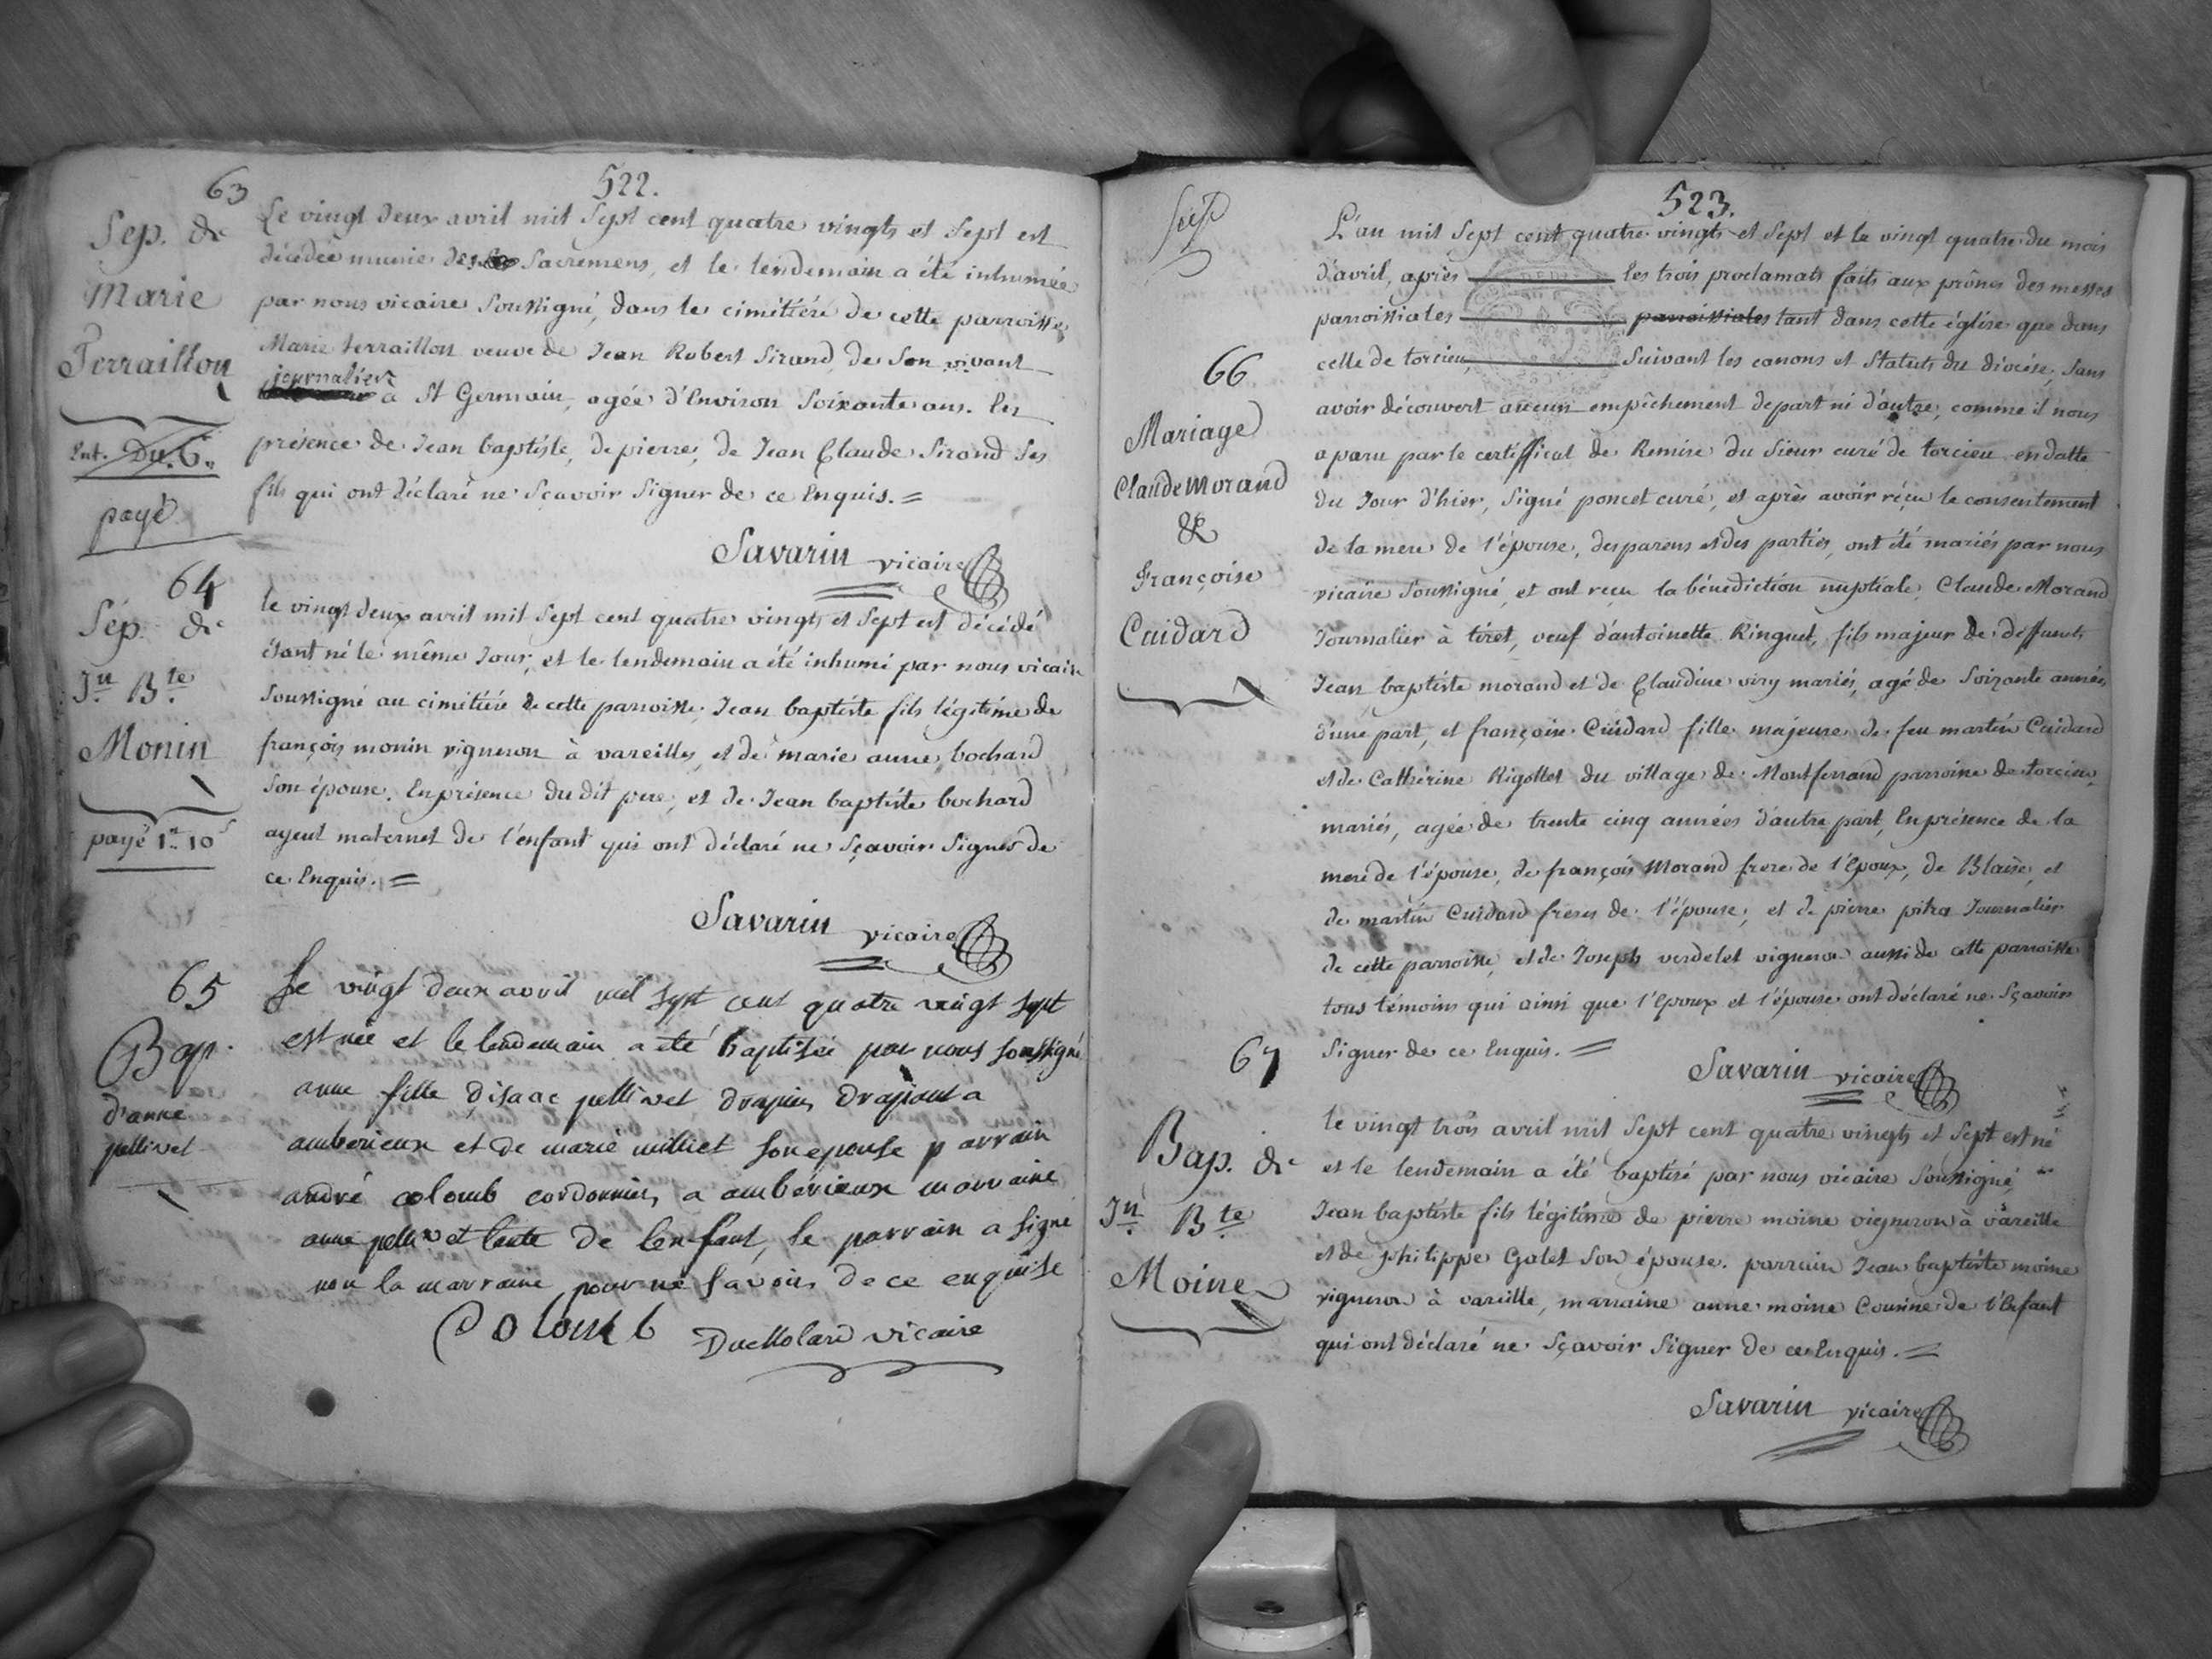 522.
63
Sep. de
Marie
Terraillon
Ent. Du. 6.
payé
Le vingt deux avril mil Sept cent quatre vingts et Sept est
décédée munie des Sacremens, et le lendemain a été inhumée
par nous vicaire Soussigné, dans le cimétiére de cette parroisse,
Marie terraillon veuve de Jean Robert Sirand, de Son vivant
journalier
a St Germain, agée d'Environ Soixante ans. En
présence de Jean baptiste, de pierre, de Jean Claude Sirand Ses
fils qui ont déclaré ne Sçavoir Signer de ce Enquis. =
Savarin vicaire
64
Sép. de
Jn Bte
Monin
payé 1tt 10s
le vingt deux avril mil Sept cent quatre vingts et Sept est décédé
étant né le même Jour, et le lendemain a été inhumé par nous vicaire
Soussigné au cimétiére de cette parroisse, Jean baptiste fils légitime de
françois monin vigneron à vareilles, et de marie anne bochard
Son épouse. En présence du dit pere, et de Jean baptiste bochard
ayeul maternel de l'enfant qui ont déclaré ne Sçavoir Signer de
ce Enquis. =
Savarin vicaire
65
Bap.
d'anne
pellivet
Le vingt deux avril mil sept cent quatre vingt sept
est née et le lendemain a été baptisée par nous soussigné
anne fille d'isaac pellivet drapier drapant a
amberieux et de marie milliet son epouse parrain
andré colomb cordonnier a amberieux marraine
anne pellivet tante de l'enfant, le parrain a signe
non la marraine pour ne savoir de ce enquise
Colomb Ducholard vicaire
523.
66
Mariage
Claude Morand
&
Françoise
Cuidard
L'an mil Sept cent quatre vingts et Sept et le vingt quatre du mois
d'avril, après les trois proclamats faits aux prônes des messes
parroissiales parroissiales tant dans cette église que dans
celle de torcieu, Suivant les canons et Statuts du diocèse, Sans
avoir découvert aucun empêchement de part ni d'autre, comme il nous
a paru par le certifficat de Remise du Sieur curé de torcieu en datte
du Jour d'hier, Signé poncet curé, et après avoir réçu le consentement
de la mere de l'épouse, des parens et des parties, ont été mariés par nous
vicaire Soussigné, et ont reçu la bénediction nuptiale, Claude Morand
Journalier à tiret, veuf d'antoinette Ringuet, fils majeur de deffunts
Jean baptiste morand et de Claudine viry mariés, agé de Soixante années
d'une part, et françoise Cuidard fille majeure de feu martin Cuidard
et de Cathérine Rigollet du village de Montferrand parroisse de torcieu,
mariés, agée de trente cinq années d'autre part, En présence de la
mere de l'épouse, de françois Morand frere de l'Epoux, de Blaise, et
de martin Cuidard freres de l'épouse, et de pierre pitra Journalier
de cette parroisse, et de Joseph verdelet vigneron aussi de cette parroisse
tous témoins qui ainsi que l'Epoux et l'épouse ont déclaré ne Sçavoir
Signer de ce Enquis. =
Savarin vicaire
67
Bap. de
Jn Bte
Moine
le vingt trois avril mil Sept cent quatre vingts et Sept est né
et le lendemain a été baptisé par nous vicaire Soussigné,
Jean baptiste fils légitime de pierre moine vigneron à vareille
et de philippe Galet Son épouse. parrain Jean baptiste moine
vigneron à vareille, marraine anne moine Cousine de l'Enfant
qui ont déclaré ne Sçavoir Signer de ce Enquis. =
Savarin vicaire